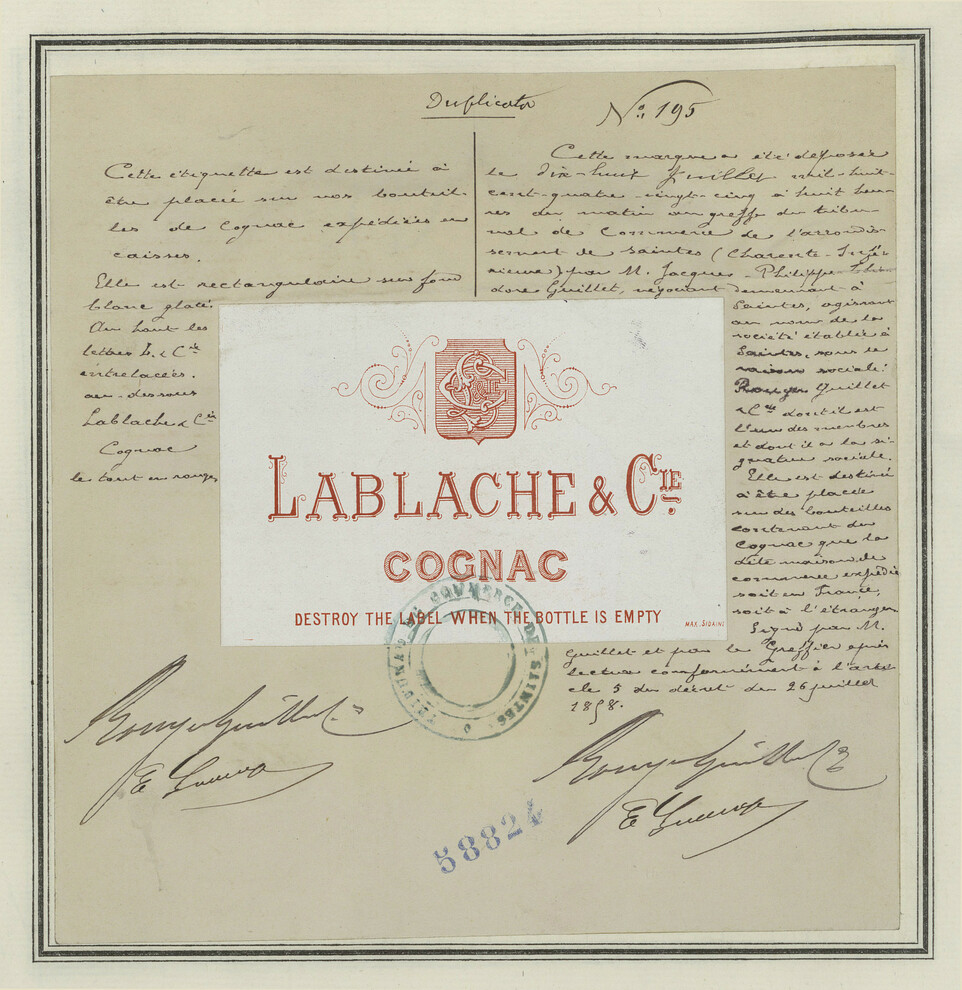 Duplicata
No. 195
Cette étiquette est destinée à
être placée sur nos bouteil-
les de Cognac expédiées en
caisses.
Elle est rectangulaire sur fond
blanc glacé.
Au haut les
lettres L. & Cie
entrelacées.
au-dessous
Lablache & Cie
Cognac
le tout en rouge,
Cette marque a été déposée
le dix-huit Juillet mil-huit-
cent-quatre-vingt-cinq à huit heu-
res du matin au greffe du tribu-
nal de Commerce de l'arrondis-
sement de Saintes (Charente-Infé-
rieure) par M. Jacques-Philippe-Théo-
dore Guillet, négociant demeurant à
Saintes, agissant
au nom de la
société établie à
Saintes, sous la
raison sociale:
Rouyer Guillet
& Cie dont il est
l'un des membres
et dont il a la si-
gnature sociale.
Elle est destinée
à être placée
sur des bouteilles
contenant du
Cognac que la
dite maison de
commerce expédie
soit en France,
soit à l'étranger.
Signé par M.
Guillet et par le Greffier après
lecture conformément à l'arti-
cle 5 du décret du 26 juillet
1858.
L & Cie
LABLACHE & CIE
COGNAC
DESTROY THE LABEL WHEN THE BOTTLE IS EMPTY
MAX. SIDAINE
TRIBUNAL DE COMMERCE DE SAINTES
Rouyer Guillet &
Rouyer Guillet &
58824